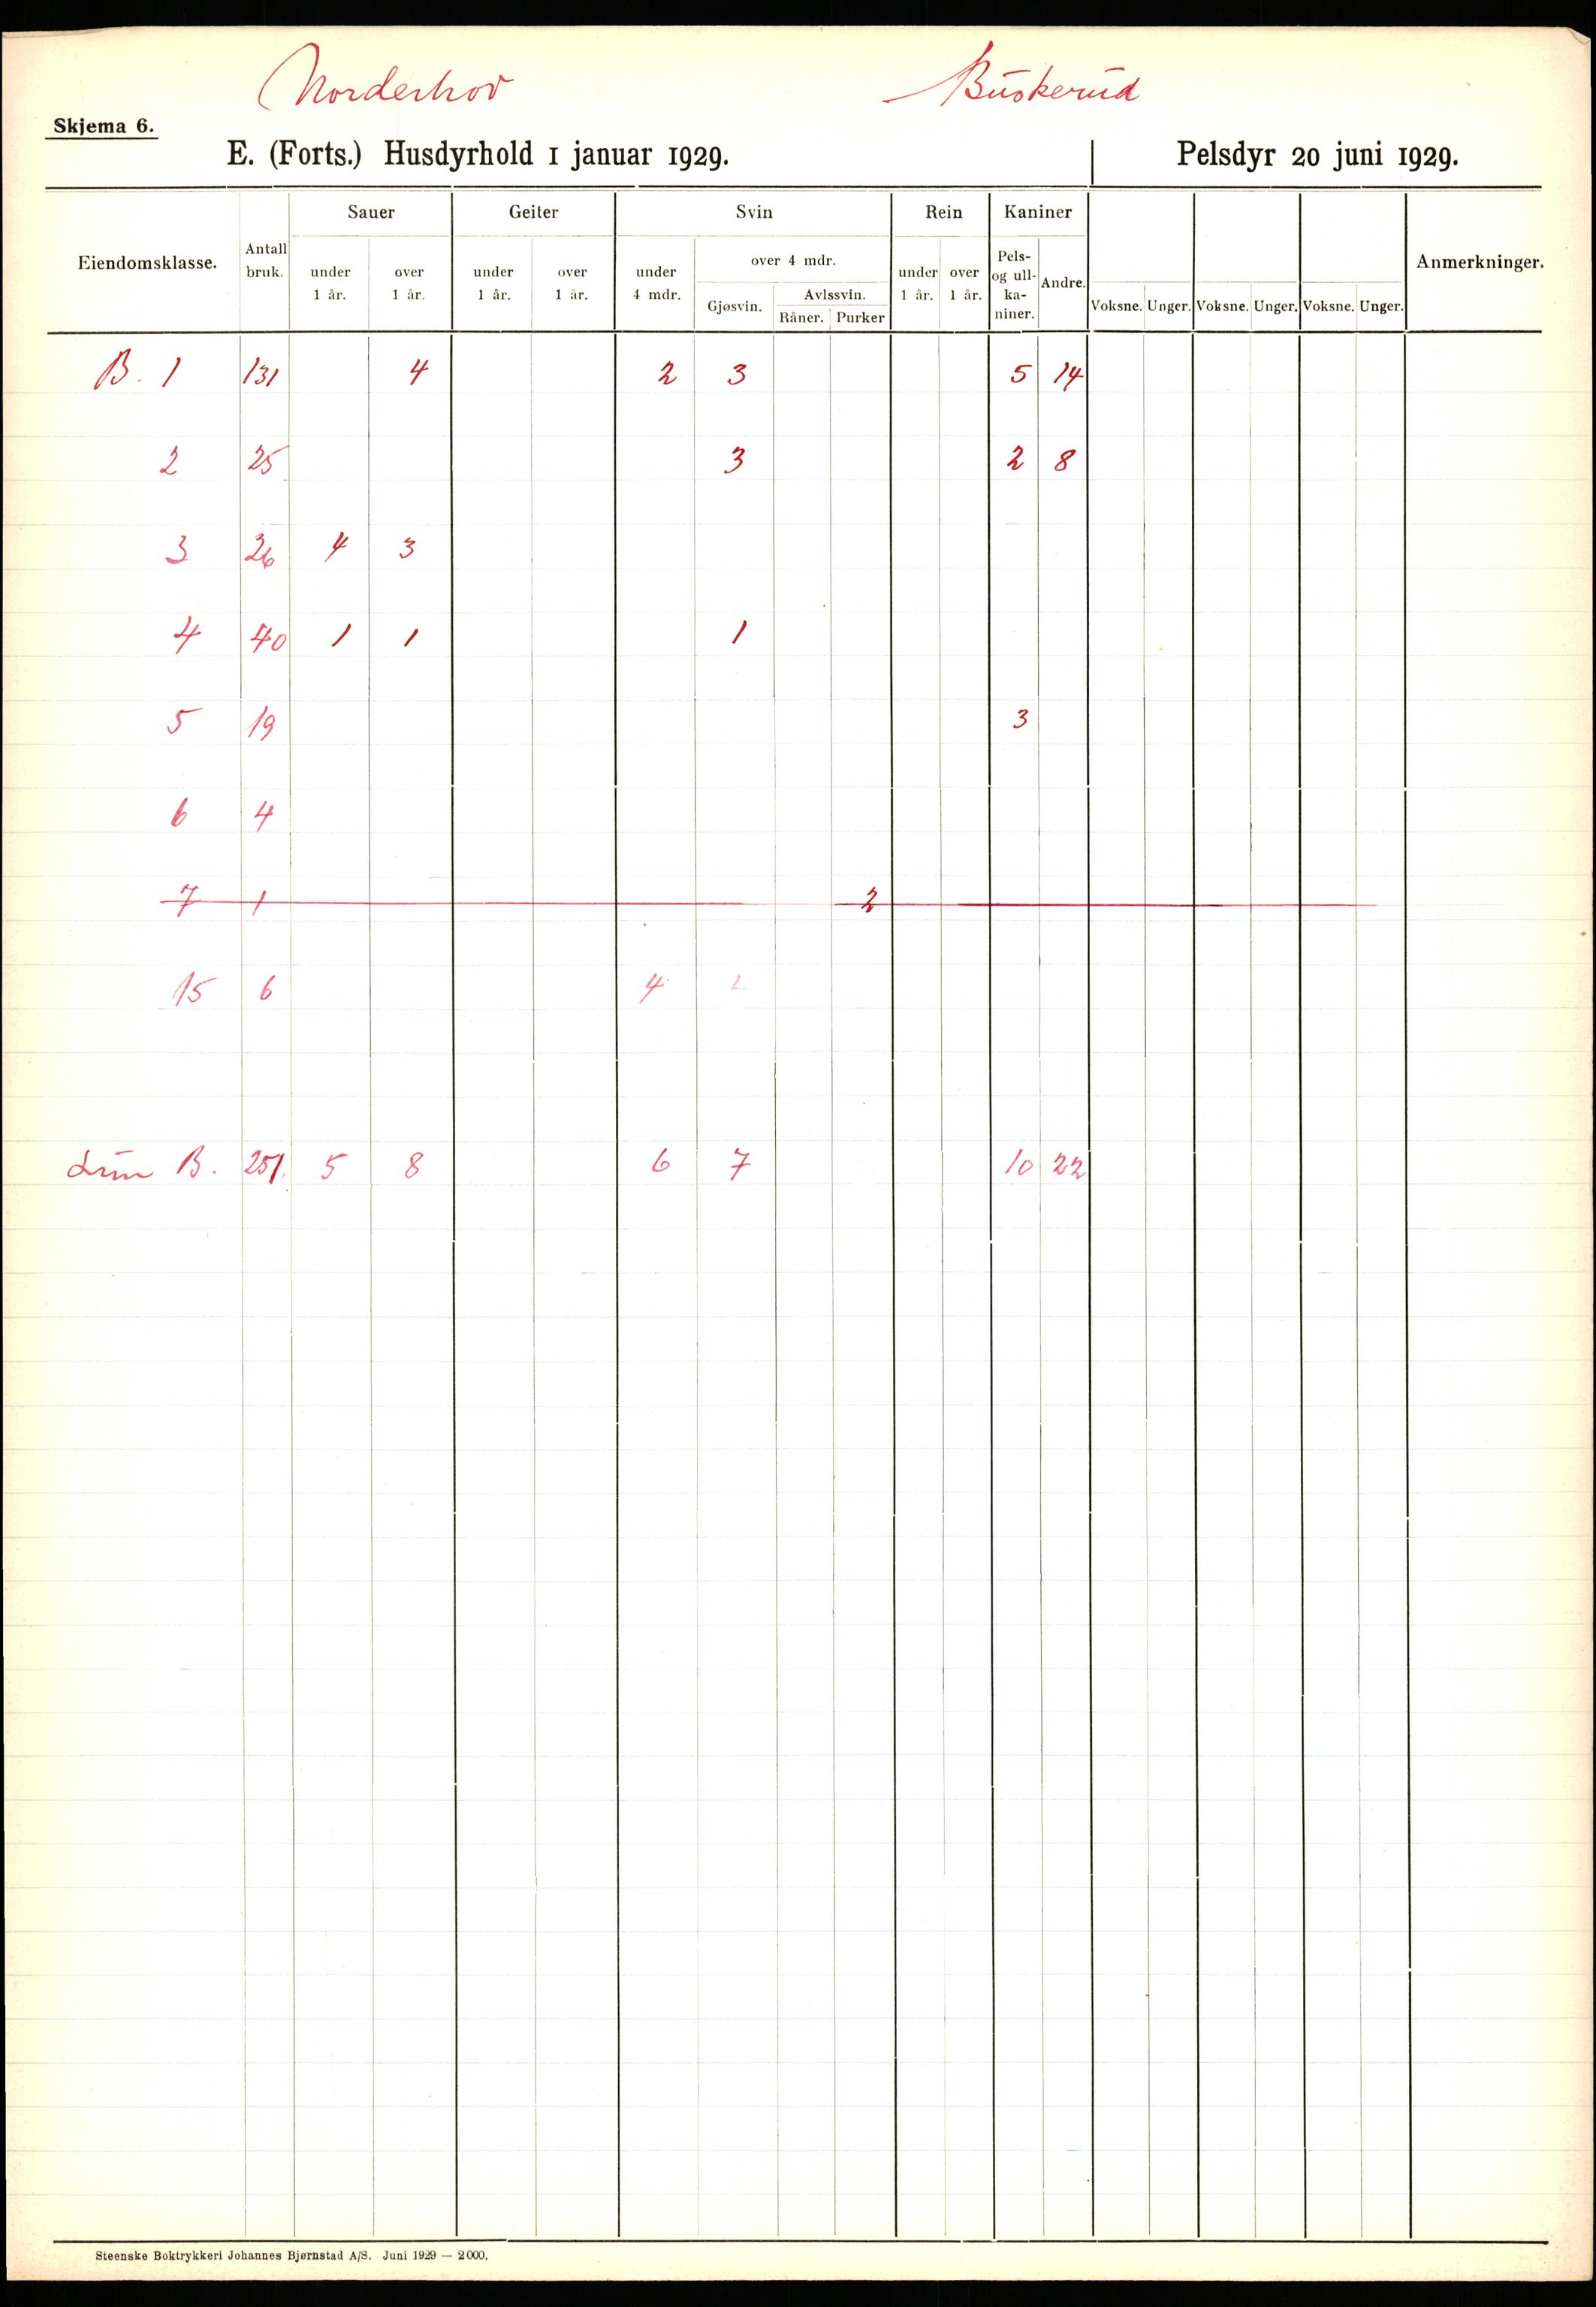 Norderhov Buskerud
Skjema 6.
E. (Forts.) Husdyrhold 1 januar 1929. Pelsdyr 20 juni 1929.
Sauer Geiter Svin Rein Kaniner
Eiendomsklasse. Antall bruk. under 1 år. over 1 år. under 1 år. over 1 år. under 4 mdr. over 4 mdr. Gjøsvin. Avlssvin. Råner. Purker under 1 år. over 1 år. Pels- og ull- ka- niner. Andre. Voksne. Unger. Voksne. Unger. Voksne. Unger. Anmerkninger.
B. 1 131 4 2 3 5 14
2 25 3 2 8
3 26 4 3
4 40 1 1 1
5 19 3
6 4
7 1 2
15 6 4
Sum B. 251. 5 8 6 7 10 22
Steenske Boktrykkeri Johannes Bjørnstad A/S. Juni 1929 — 2000.